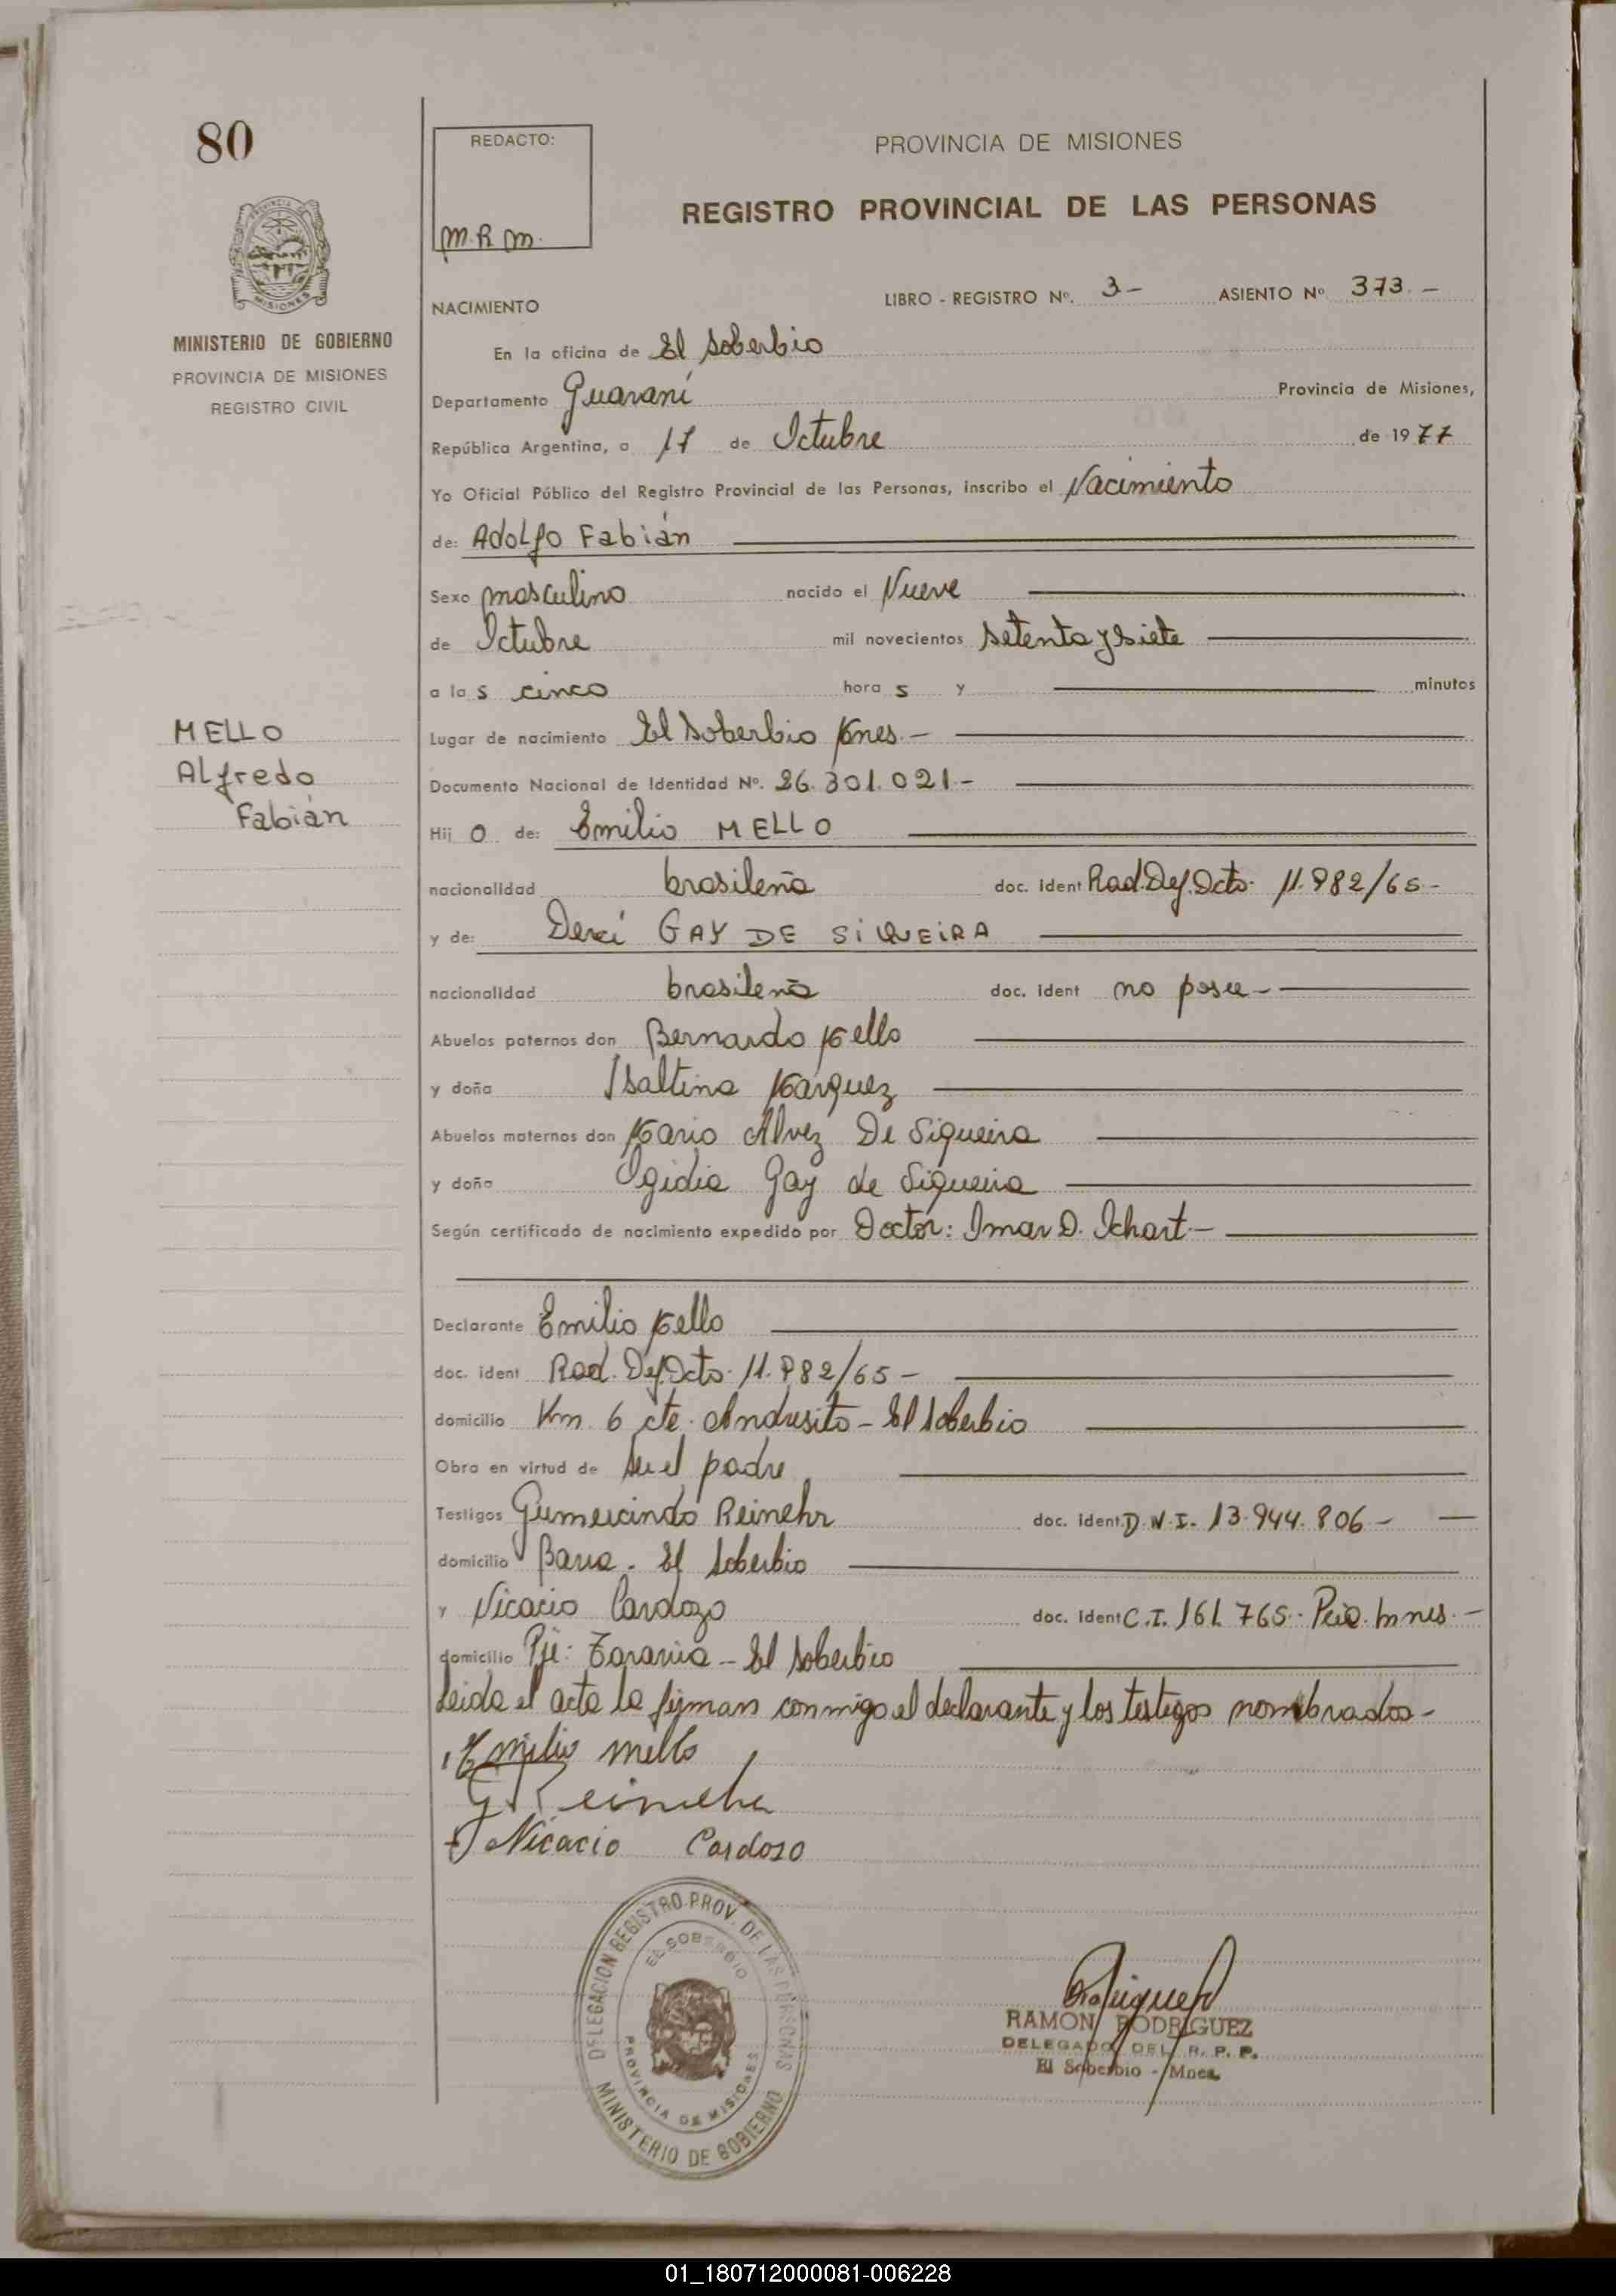 80
REDACTO:
M. R. M.
PROVINCIA DE MISIONES
REGISTRO PROVINCIAL DE LAS PERSONAS
PROVINCIA DE
MISIONES
MINISTERIO DE GOBIERNO
PROVINCIA DE MISIONES
REGISTRO CIVIL
NACIMIENTO LIBRO - REGISTRO Nº. 3- ASIENTO Nº 373.-
En la oficina de El Soberbio
Departamento Guaraní Provincia de Misiones,
República Argentina, a 17 de Octubre de 1977
Yo Oficial Público del Registro Provincial de las Personas, inscribo el Nacimiento
de: Adolfo Fabián
Sexo masculino nacido el Nueve
de Octubre mil novecientos setenta y siete
a las cinco horas y minutos
MELLO
Alfredo
Fabián
Lugar de nacimiento El Soberbio Mnes.-
Documento Nacional de Identidad Nº. 26.301.021-
Hijo de: Emilio MELLO
nacionalidad brasileña doc. ident Rad.Def.Dcto. 11.982/65-
y de: Derci GAY DE SIQUEIRA
nacionalidad brasileña doc. ident no posee-
Abuelos paternos don Bernardo Mello
y doña Isaltina Márquez
Abuelos maternos don Mario Alvez De Siqueira
y doña Ogidia Gay de Siqueira
Según certificado de nacimiento expedido por Doctor: Imar D. Ichart-
Declarante Emilio Mello
doc. ident Rad. Def.Dcto. 11.982/65-
domicilio Km. 6 cte. Andresito - El Soberbio
Obra en virtud de ser el padre
Testigos Gumercindo Reinehr doc. ident. D.N.I. 13.944.806-
domicilio Barra - El Soberbio
y Nicacio Cardozo doc. ident C.I. 161.765. Pcia. Mnes.-
domicilio Pje: - El Soberbio
Leida el acta la firman conmigo el declarante y los testigos nombrados-
Emilio mello
G Reinehr
Nicacio Cardoso
DELEGACION REGISTRO PROV. DE LAS PERSONAS
EL SOBERBIO
PROVINCIA DE MISIONES
MINISTERIO DE GOBIERNO
RAMON RODRIGUEZ
DELEGADO DEL R. P. P.
El Soberbio - Mnes.
01_180712000081-006228